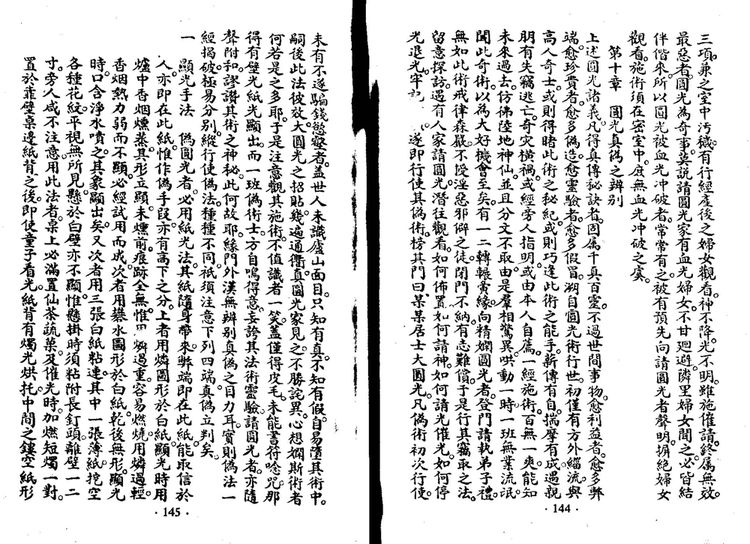 三項兼之室中污穢有行經產後之婦女觀看神不降光不明雖施催請終屬無效
最忌者圓光為奇事莫說請圓光家有血光婦女不甘迴避隣里婦女聞之必皆結
伴偕來所以圓光被血光冲破者常常有之被有預先向請圓光者聲明摒絕婦女
觀看施術須在密室中庶無血光冲破之虞
第十章 圓光真偽之辨別
上述圓光諸義凡得真傳秘訣者固屬千真百靈不過世間事物愈利益者愈多弊
端愈珍貴者愈多偽造愈靈驗者愈多假冒溯自圓光術行世初僅有方外緇流與
高人奇士或則得睹此術之秘紀或則巧逢此術之能手薪傳有自揣摩有成遇親
朋有失竊逃亡奇灾橫禍或經旁人指明或由本人自薦一經施術百無一爽能知
未來過去仿佛陸地神仙並且分文不取由是羣相驚異哄動一時一班無業流氓
聞此奇術以為大好機會至矣有一二轉輾夤緣向精嫻圓光者登門請執弟子禮
無如此術戒律森嚴不授淫惡邪僻之徒閉門不納有志難償于是行其竊取之法
留意探訪遇有人家請圓光潛往觀看如何佈置如何請神如何請光催光如何停
光退光牢 遂即行使其偽術榜其門曰某某居士大圓光凡偽術初次行使
·144·
未有不遂騙錢慾壑者蓋世人未識廬山面目只知有真不知有假自易墮其術中
嗣後此法彼放大圓光之招貼幾遍通衢真圓光家見之不勝詫異心想嫻斯術者
何若是之多耶于是注意觀其施術不值識者一笑蓋僅得皮毛未能書符唸咒那
得有璧光紙光顯出而一班偽術士方自鳴得意妄誇其法術靈驗請圓光者亦隨
聲附和謬讚其術之神秘此何故耶緣門外漢無辨別真偽之目力耳實則偽法一
經揭破極易分別縱行使偽法種種不同祇須注意下列四端真偽立判矣
一 顯光手法 偽圓光者必用紙光法其紙隨身帶來弊端即在此紙能取信於
人亦即在此紙惟作偽手段亦有高下之分上者用燐圖形於白紙顯光時用
爐中香烟燻蒸具形立顯未燻前痕跡全無惟 燐過重容易燃燒用燐過輕
香烟熱力弱而不顯必經試用而成次者用礬水圖形於白紙乾後無形顯光
時口含淨水噴之其象顯出矣又次者用三張白紙粘連其中一張薄紙挖空
各種花紋平視無所見懸於白壁亦不顯惟懸掛時須粘附長釘頭離壁一二
寸旁人咸不注意用此法者桌上必滿置仙茶蔬菓及催光時加燃短燭一對
置於靠壁桌邊紙背之後即使童子看光紙背有燭光烘托中間之鏤空紙形
·145·